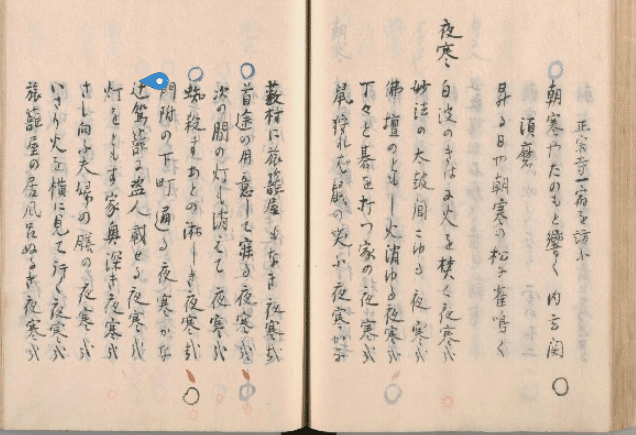 正宗寺一宿を訪ふ
朝寒やたのもと響く内玄関
須磨
昇る日や朝寒の松に雀鳴く
夜寒
白波のきはに火を焚く夜寒哉
妙法の太鼓聞こゆる夜寒哉
佛壇のともし火消ゆる夜寒哉
丁々と碁を打つ家の夜寒哉
鼠狩れば鼠の笑ふ夜寒かな
藪村に旅籠屋もなき夜寒哉
首途の用意して寐る夜寒哉
次の間の灯も消えて夜寒哉
蜘殺すあとの淋しき夜寒哉
門附の下町通る夜寒かな
辻駕籠に盗人載せる夜寒哉
灯をともす家奥深き夜寒哉
さし向ふ夫婦の膳の夜寒哉
いさり火を横に見て行く夜寒哉
旅籠屋の居風呂ぬるき夜寒哉